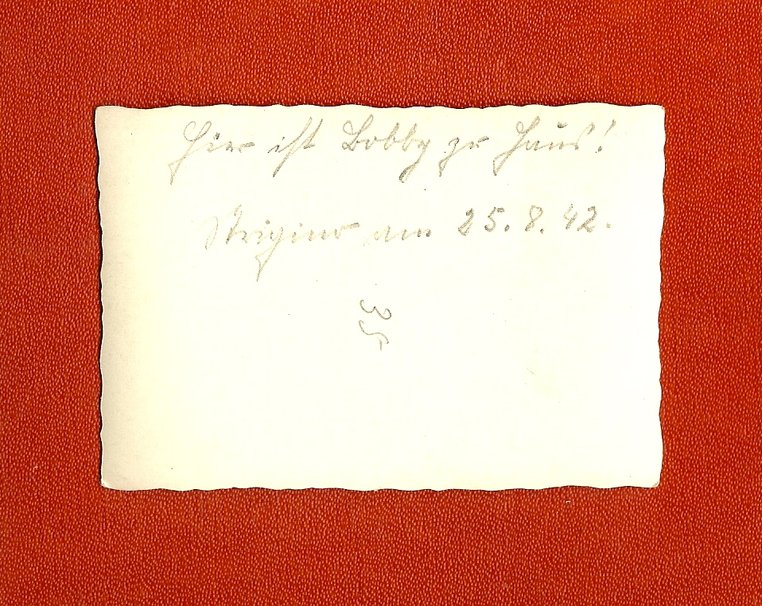 Hier ist Bobby zu Haus!
am 25.8.42.
35